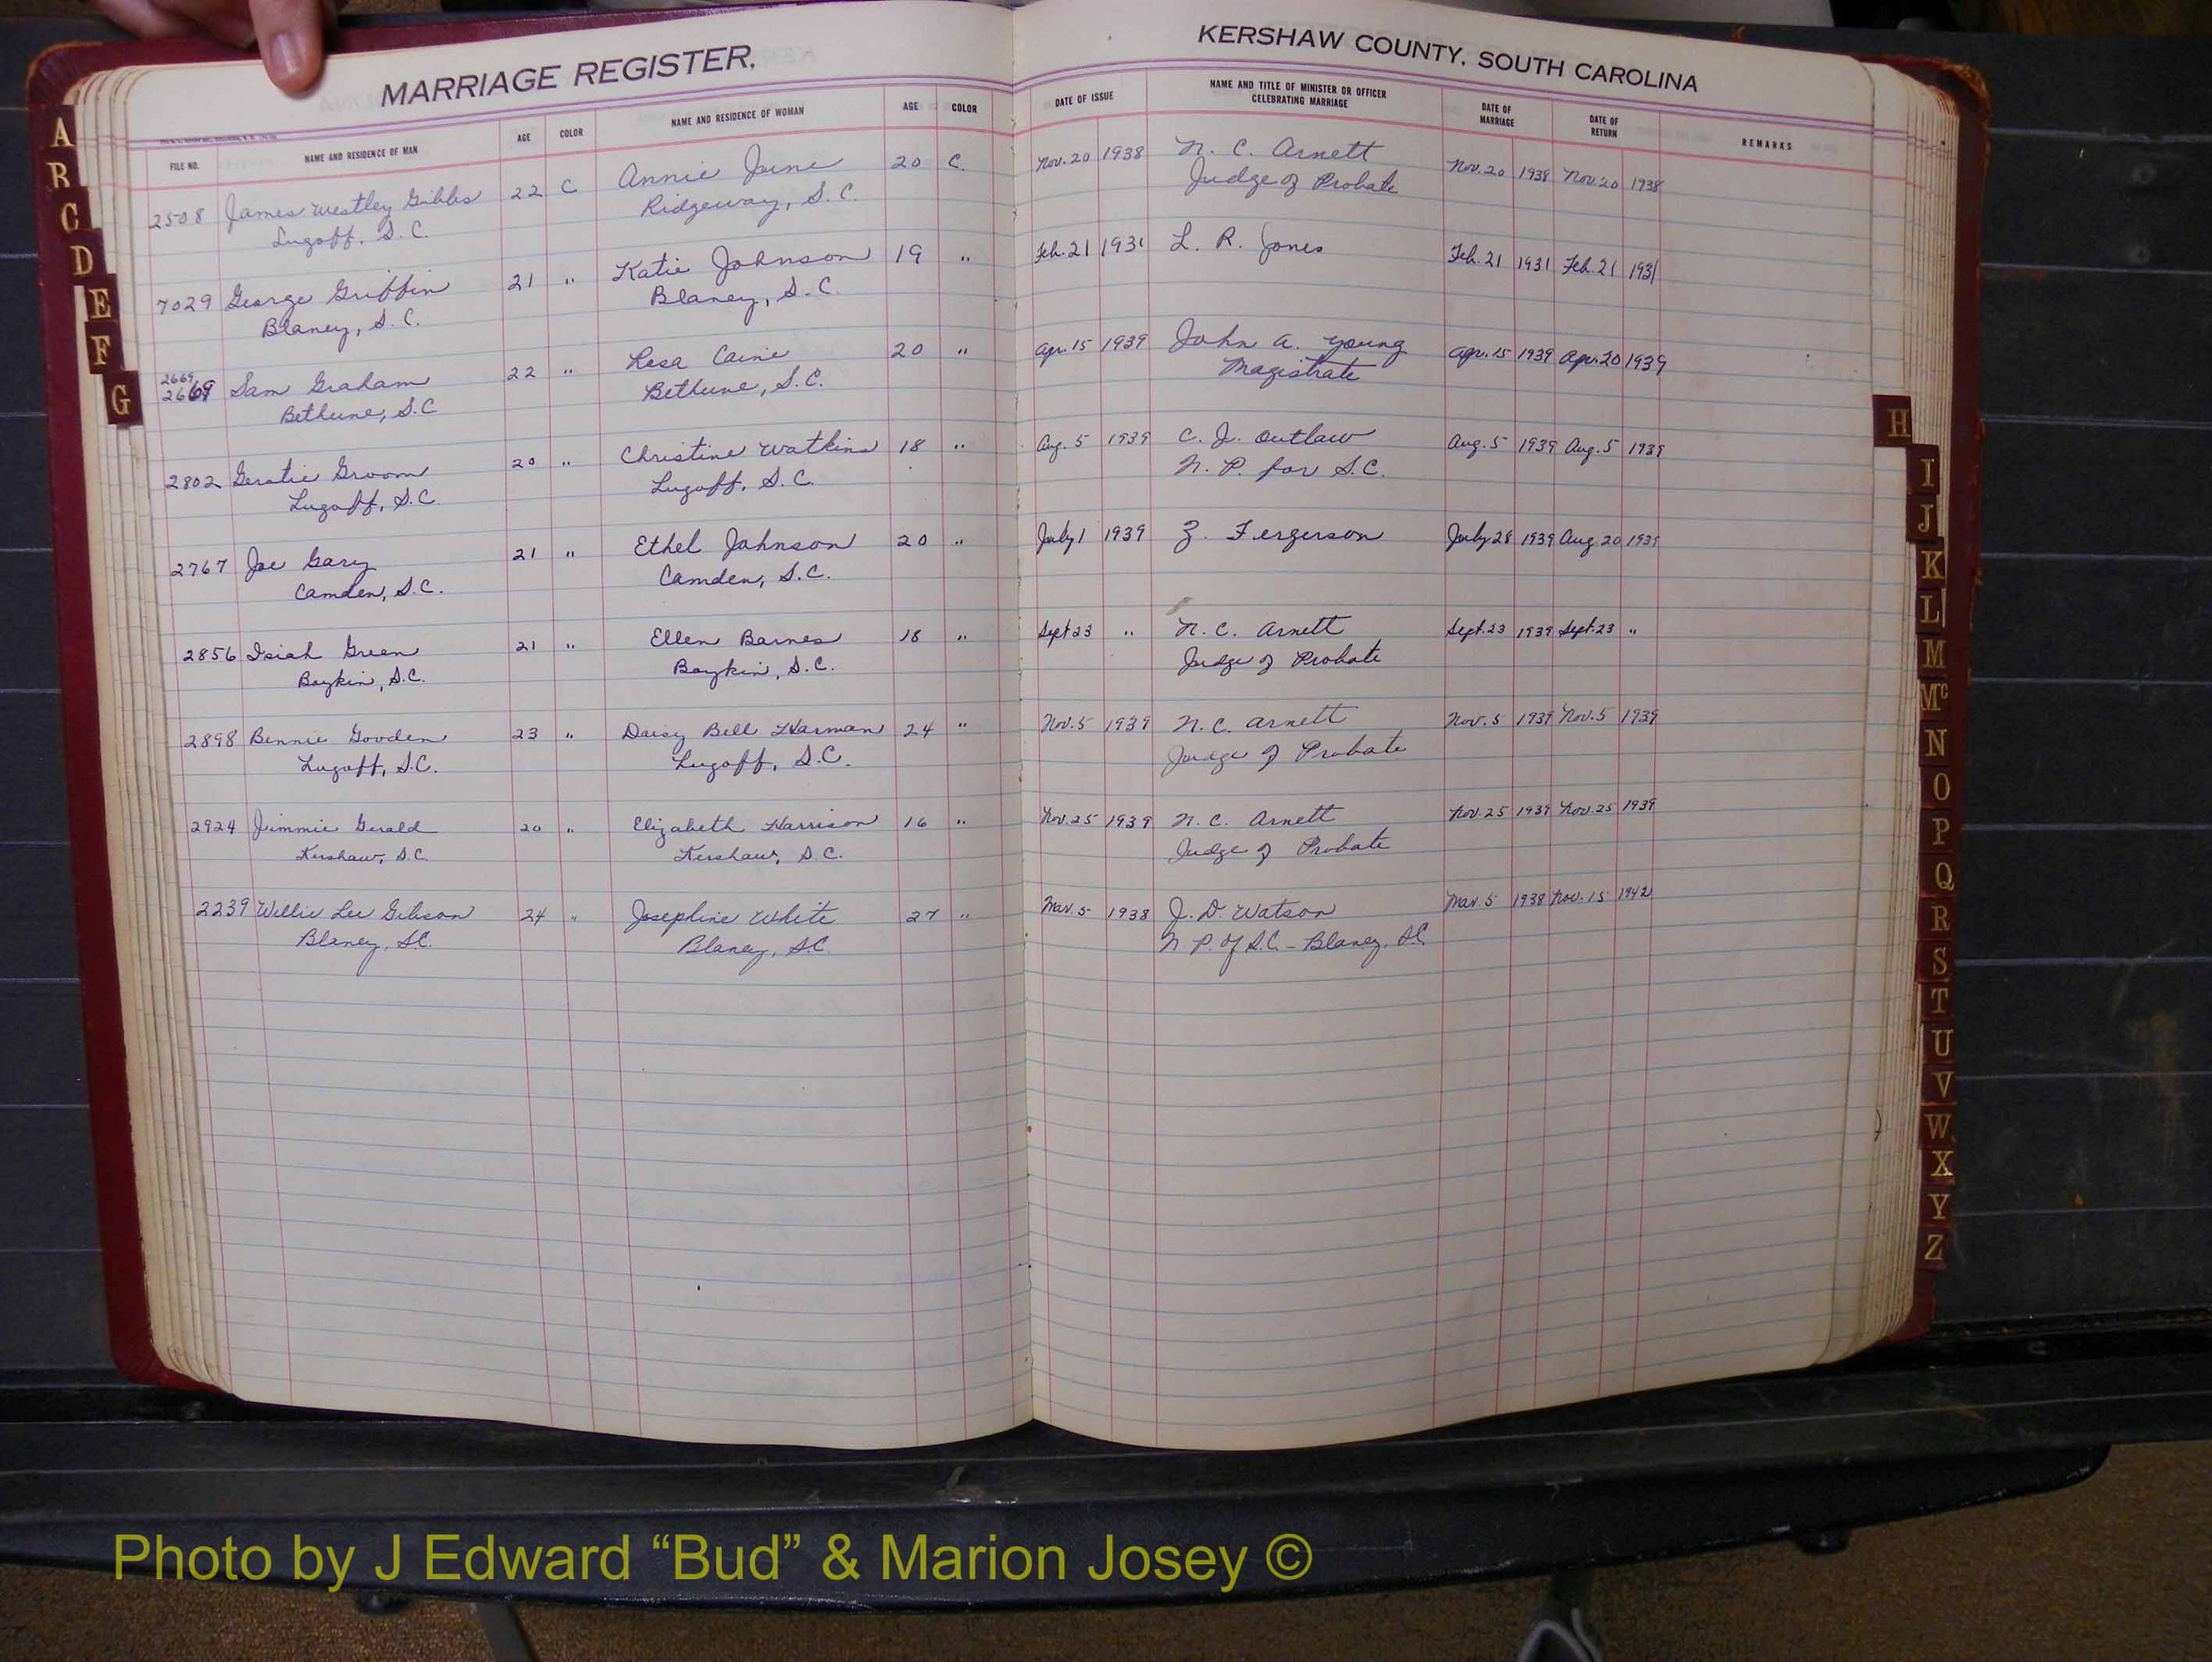 MARRIAGE REGISTER,
KERSHAW COUNTY, SOUTH CAROLINA
FILE NO. NAME AND RESIDENCE OF MAN AGE COLOR NAME AND RESIDENCE OF WOMAN AGE COLOR DATE OF ISSUE NAME AND TITLE OF MINISTER OR OFFICER CELEBRATING MARRIAGE DATE OF MARRIAGE DATE OF RETURN REMARKS
2508 James Westley Gibbs 22 C Annie June 20 C. Nov. 20 1938 N. C. Arnett Nov. 20 1938 Nov. 20 1938
Lugoff, S.C. Ridgeway, S.C. Judge of Probate
7029 George Griffin 21 " Katie Johnson 19 " Feb. 21 1931 L. R. Jones Feb. 21 1931 Feb. 21 1931
Blaney, S.C. Blaney, S.C.
2669
2669 Sam Graham 22 " Rosa Caine 20 " Apr. 15 1939 John A. Young Apr. 15 1939 Apr. 20 1939
Bethune, S.C. Bethune, S.C. Magistrate
2802 Groom 20 " Christine Watkins 18 " Aug. 5 1939 C. J. Outlaw Aug. 5 1939 Aug. 5 1939
Lugoff, S.C. Lugoff, S.C. N. P. for S.C.
2767 Joe Gary 21 " Ethel Johnson 20 " July 1 1939 Z. Fergerson July 28 1939 Aug. 20 1939
Camden, S.C. Camden, S.C.
2856 Isiah Green 21 " Ellen Barnes 18 " Sept 23 " N. C. Arnett Sept. 23 1939 Sept. 23 "
Boykin, S.C. Boykin, S.C. Judge of Probate
2898 Bennie Gooden 23 " Daisy Bell Harman 24 " Nov. 5 1939 N. C. Arnett Nov. 5 1939 Nov. 5 1939
Lugoff, S.C. Lugoff, S.C. Judge of Probate
2924 Jimmie Gerald 20 " Elizabeth Harrison 16 " Nov. 25 1939 N. C. Arnett Nov. 25 1939 Nov. 25 1939
Kershaw, S.C. Kershaw, S.C. Judge of Probate
2239 Willie Lee Gibson 24 " Josephine White 27 " Mar. 5 1938 J. D. Watson Mar. 5 1938 Nov. 15 1942
Blaney, S.C. Blaney, S.C. N. P. of S.C. - Blaney, S.C.
A
B
C
D
E
F
G
H
I
J
K
L
M
Mc
N
O
P
Q
R
S
T
U
V
W
X
Y
Z
Photo by J Edward “Bud” & Marion Josey ©